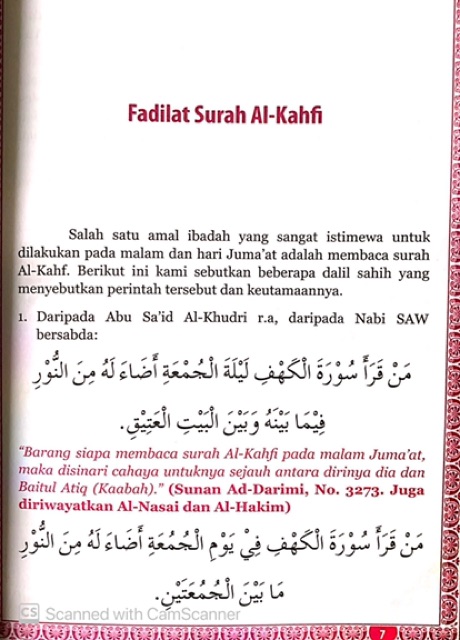 Fadilat Surah Al-Kahfi
Salah satu amal ibadah yang sangat istimewa untuk
dilakukan pada malam dan hari Juma'at adalah membaca surah
Al-Kahf. Berikut ini kami sebutkan beberapa dalil sahih yang
menyebutkan perintah tersebut dan keutamaannya.
1. Daripada Abu Sa'id Al-Khudri r.a, daripada Nabi SAW
bersabda:
مَنْ قَرَأَ سُوْرَةَ الْكَهْفِ لَيْلَةَ الْجُمْعَةِ أَضَاءَ لَهُ مِنَ النُّوْرِ
فِيْمَا بَيْنَهُ وَبَيْنَ الْبَيْتِ الْعَتِيْقِ.
"Barang siapa membaca surah Al-Kahfi pada malam Juma'at,
maka disinari cahaya untuknya sejauh antara dirinya dia dan
Baitul Atiq (Kaabah)." (Sunan Ad-Darimi, No. 3273. Juga
diriwayatkan Al-Nasai dan Al-Hakim)
مَنْ قَرَأَ سُوْرَةَ الْكَهْفِ فِيْ يَوْمِ الْجُمُعَةِ أَضَاءَ لَهُ مِنَ النُّوْرِ
مَا بَيْنَ الْجُمُعَتَيْنِ.
CS Scanned with CamScanner
7